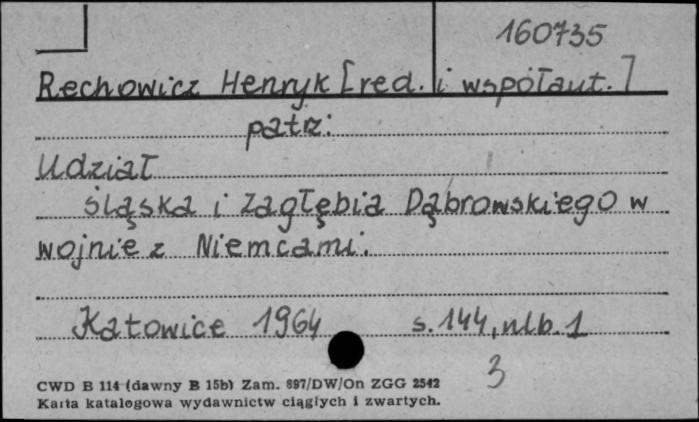 160735
Rechowicz Henryk [red. i współaut.]
patrz:
Udział
Śląska i Zagłębia Dąbrowskiego w
wojnie z Niemcami.
Katowice 1964 s. 144, nlb. 1
3
CWD B 114 (dawny B 15b) Zam. 897/DW/On ZGG 2542
Karta katalogowa wydawnictw ciągłych i zwartych.